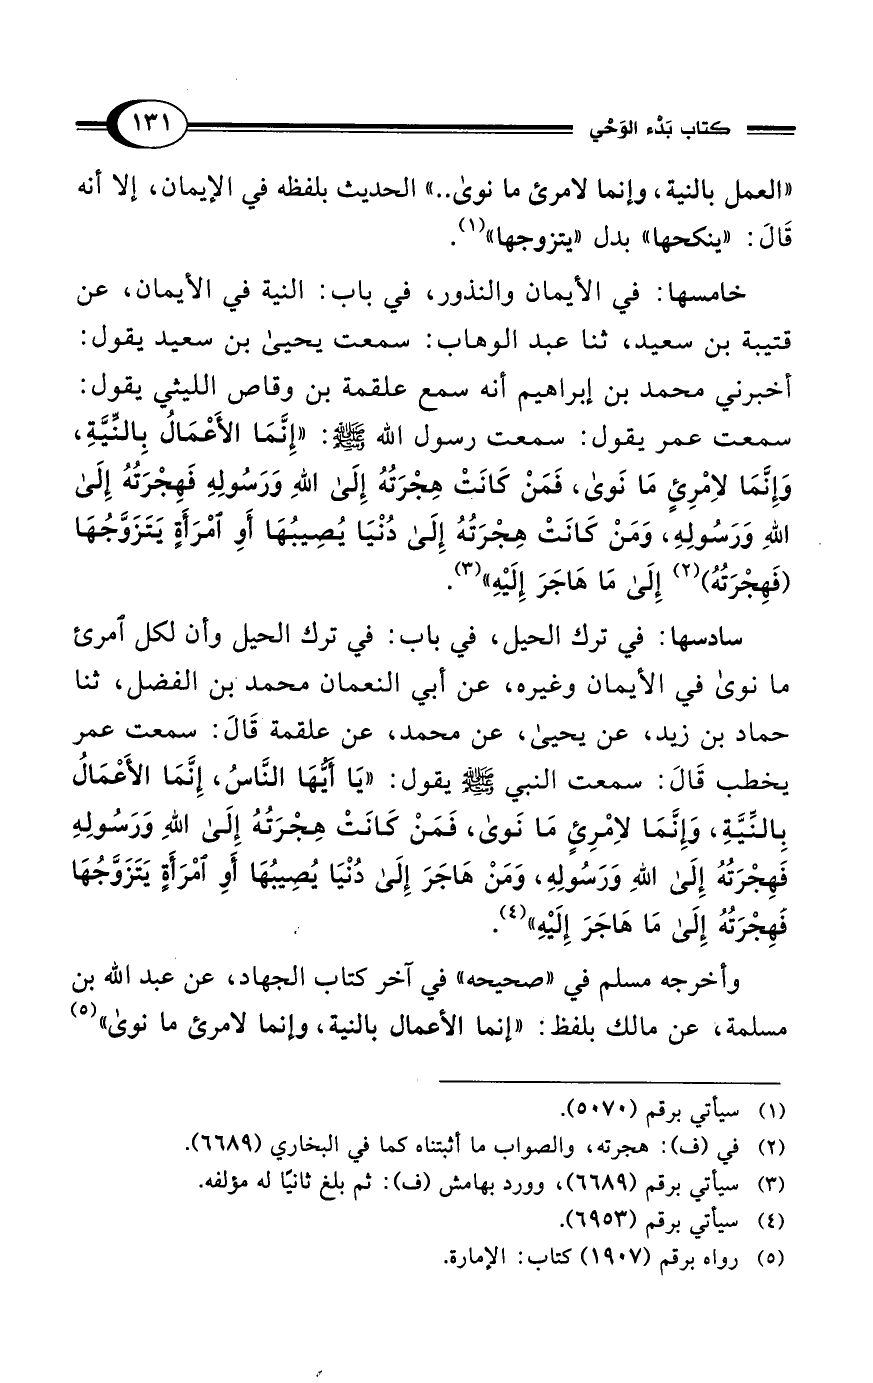 كتاب بَدْء الوَحْي
١٣١
«العمل بالنية، وإنما لامرئ ما نوىٰ..» الحديث بلفظه في الإيمان، إلا أنه
قَالَ: «ينكحها» بدل «يتزوجها»(١).
خامسها: في الأيمان والنذور، في باب: النية في الأيمان، عن
قتيبة بن سعيد، ثنا عبد الوهاب: سمعت يحيىٰ بن سعيد يقول:
أخبرني محمد بن إبراهيم أنه سمع علقمة بن وقاص الليثي يقول:
سمعت عمر يقول: سمعت رسول الله ﷺ: «إِنَّمَا الأَعْمَالُ بِالنِّيَّةِ،
وَإِنَّمَا لاِمْرِئٍ مَا نَوىٰ، فَمَنْ كَانَتْ هِجْرَتُهُ إِلَىٰ اللهِ وَرَسُولِهِ فَهِجْرَتُهُ إِلَىٰ
اللهِ وَرَسُولِهِ، وَمَنْ كَانَتْ هِجْرَتُهُ إِلَىٰ دُنْيَا يُصِيبُهَا أَوِ ٱمْرَأَةٍ يَتَزَوَّجُهَا
(فَهِجْرَتُهُ)(٢) إِلَىٰ مَا هَاجَرَ إِلَيْهِ»(٣).
سادسها: في ترك الحيل، في باب: في ترك الحيل وأن لكل ٱمرئ
ما نوىٰ في الأيمان وغيره، عن أبي النعمان محمد بن الفضل، ثنا
حماد بن زيد، عن يحيىٰ، عن محمد، عن علقمة قَالَ: سمعت عمر
يخطب قَالَ: سمعت النبي ﷺ يقول: «يَا أَيُّهَا النَّاسُ، إِنَّمَا الأَعْمَالُ
بِالنِّيَّةِ، وَإِنَّمَا لاِمْرِئٍ مَا نَوىٰ، فَمَنْ كَانَتْ هِجْرَتُهُ إِلَىٰ اللهِ وَرَسُولِهِ
فَهِجْرَتُهُ إِلَىٰ اللهِ وَرَسُولِهِ، وَمَنْ هَاجَرَ إِلَىٰ دُنْيَا يُصِيبُهَا أَوِ ٱمْرَأَةٍ يَتَزَوَّجُهَا
فَهِجْرَتُهُ إِلَىٰ مَا هَاجَرَ إِلَيْهِ»(٤).
وأخرجه مسلم في «صحيحه» في آخر كتاب الجهاد، عن عبد الله بن
مسلمة، عن مالك بلفظ: «إنما الأعمال بالنية، وإنما لامرئ ما نوىٰ»(٥)
(١) سيأتي برقم (٥٠٧٠).
(٢) في (ف): هجرته، والصواب ما أثبتناه كما في البخاري (٦٦٨٩).
(٣) سيأتي برقم (٦٦٨٩)، وورد بهامش (ف): ثم بلغ ثانيًا له مؤلفه.
(٤) سيأتي برقم (٦٩٥٣).
(٥) رواه برقم (١٩٠٧) كتاب: الإمارة.